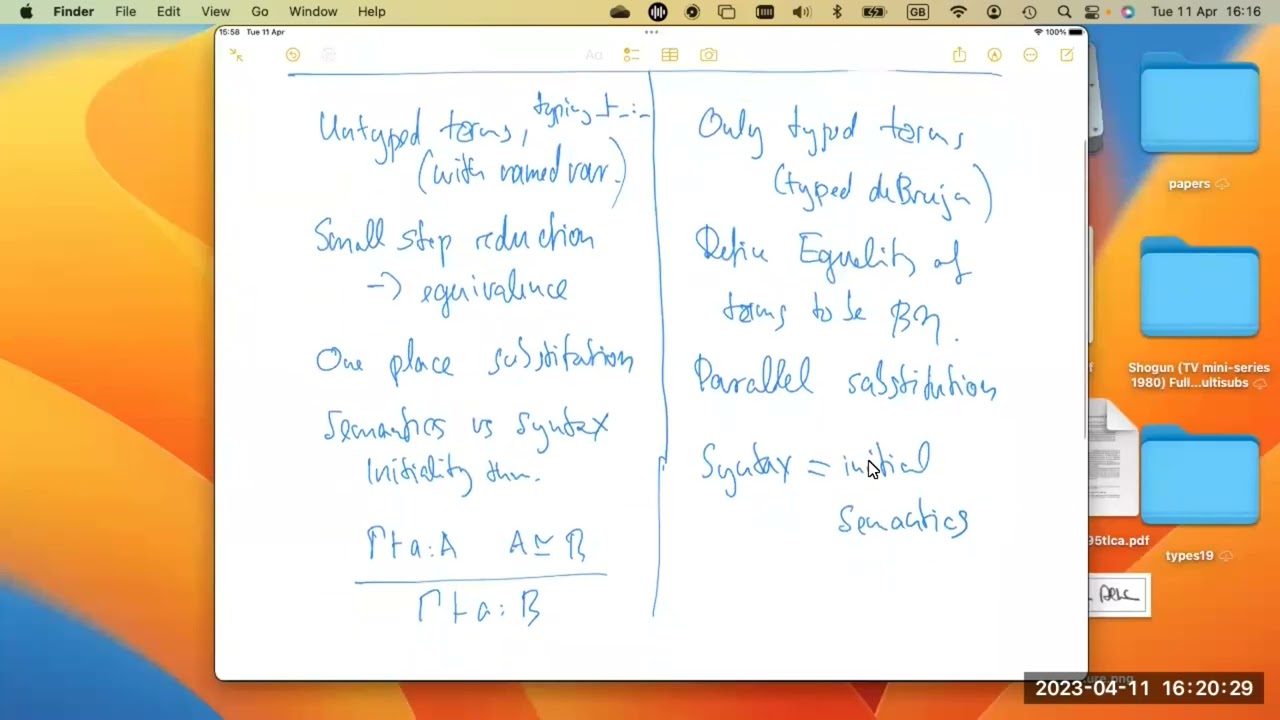 Finder File Edit View Go Window Help GB Tue 11 Apr 16:16
15:58 Tue 11 Apr
100%
Aa
Untyped terms, typing ⊢_:_
(with named var.)
Small step reduction
→ equivalence
One place substitution
Semantics vs Syntax
Initiality thm.
Γ⊢a:A A≃B
Γ⊢a:B
Only typed terms
(typed deBruijn)
Define Equality of
terms to be βη.
Parallel substitution
Syntax = initial
Semantics
papers
Shogun (TV mini-series
1980) Full...ultisubs
95tlca.pdf
types19
ure.png
2023-04-11 16:20:29